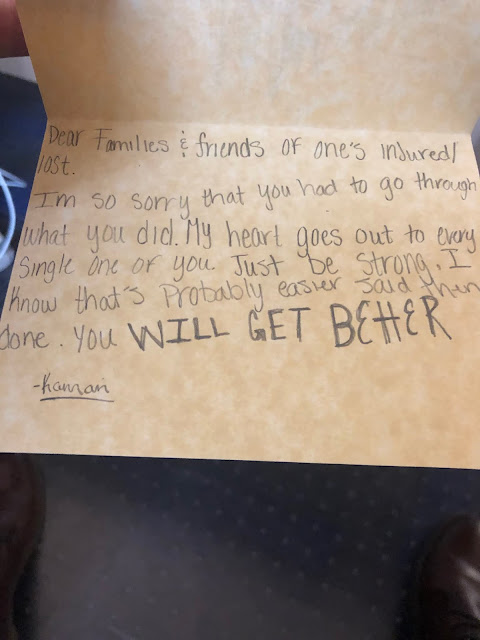 Dear Families & friends of one's injured/
lost.
Im so sorry that you had to go through
what you did. My heart goes out to every
single one of you Just be strong. I
Know that's Probably easier said then
done. You WILL GET BEttER